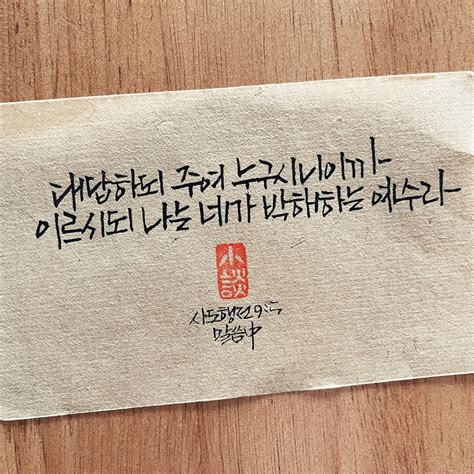 대답하되 주여 누구시니이까
이르시되 나는 네가 박해하는 예수라
小談
사도행전 9:5
말씀中